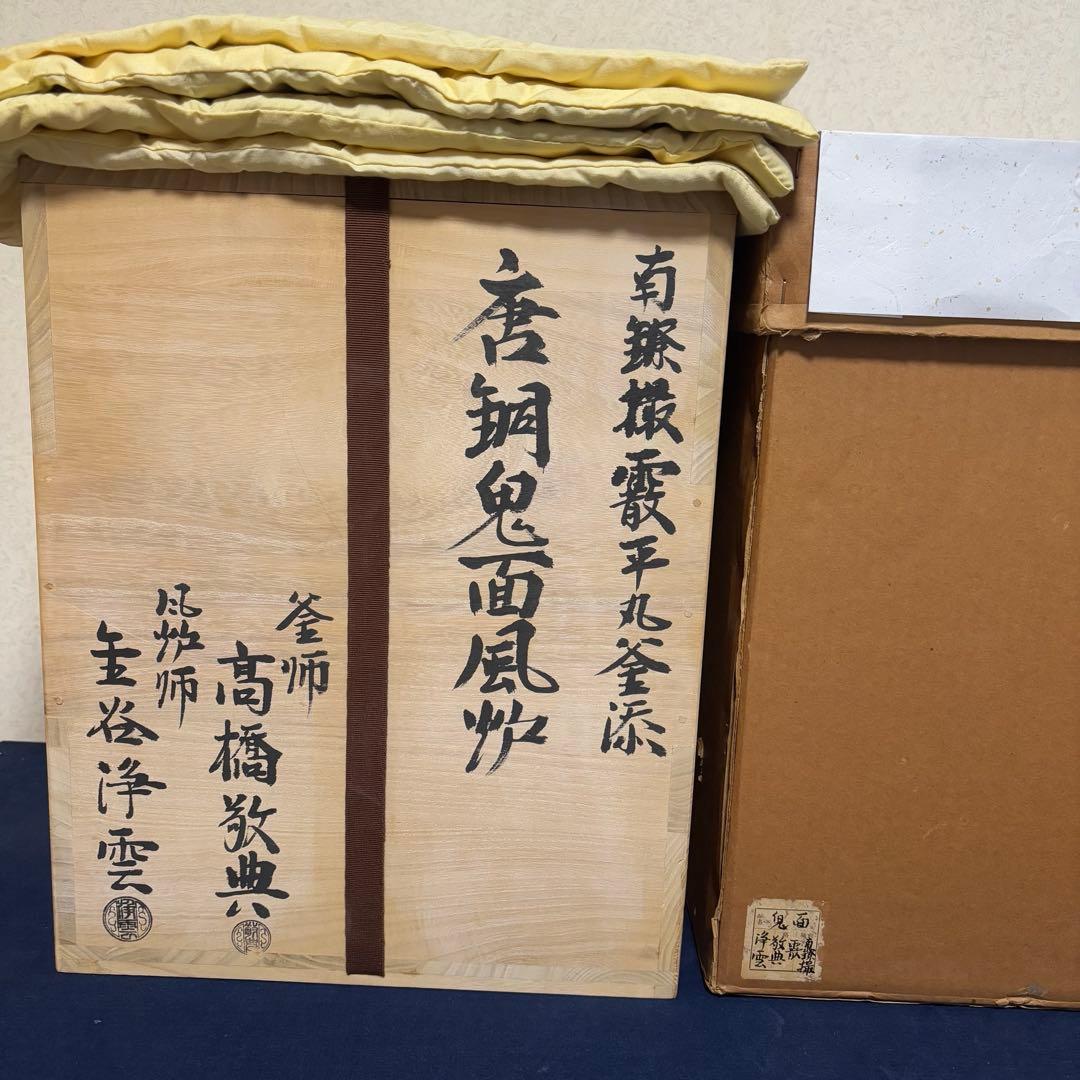 南鐐撮霰平丸釜添
唐銅鬼面風炉
釜师
高橋敬典
风炉师
金谷浄雲
鬼面
南鐐撮
霰
敬典
浄雲